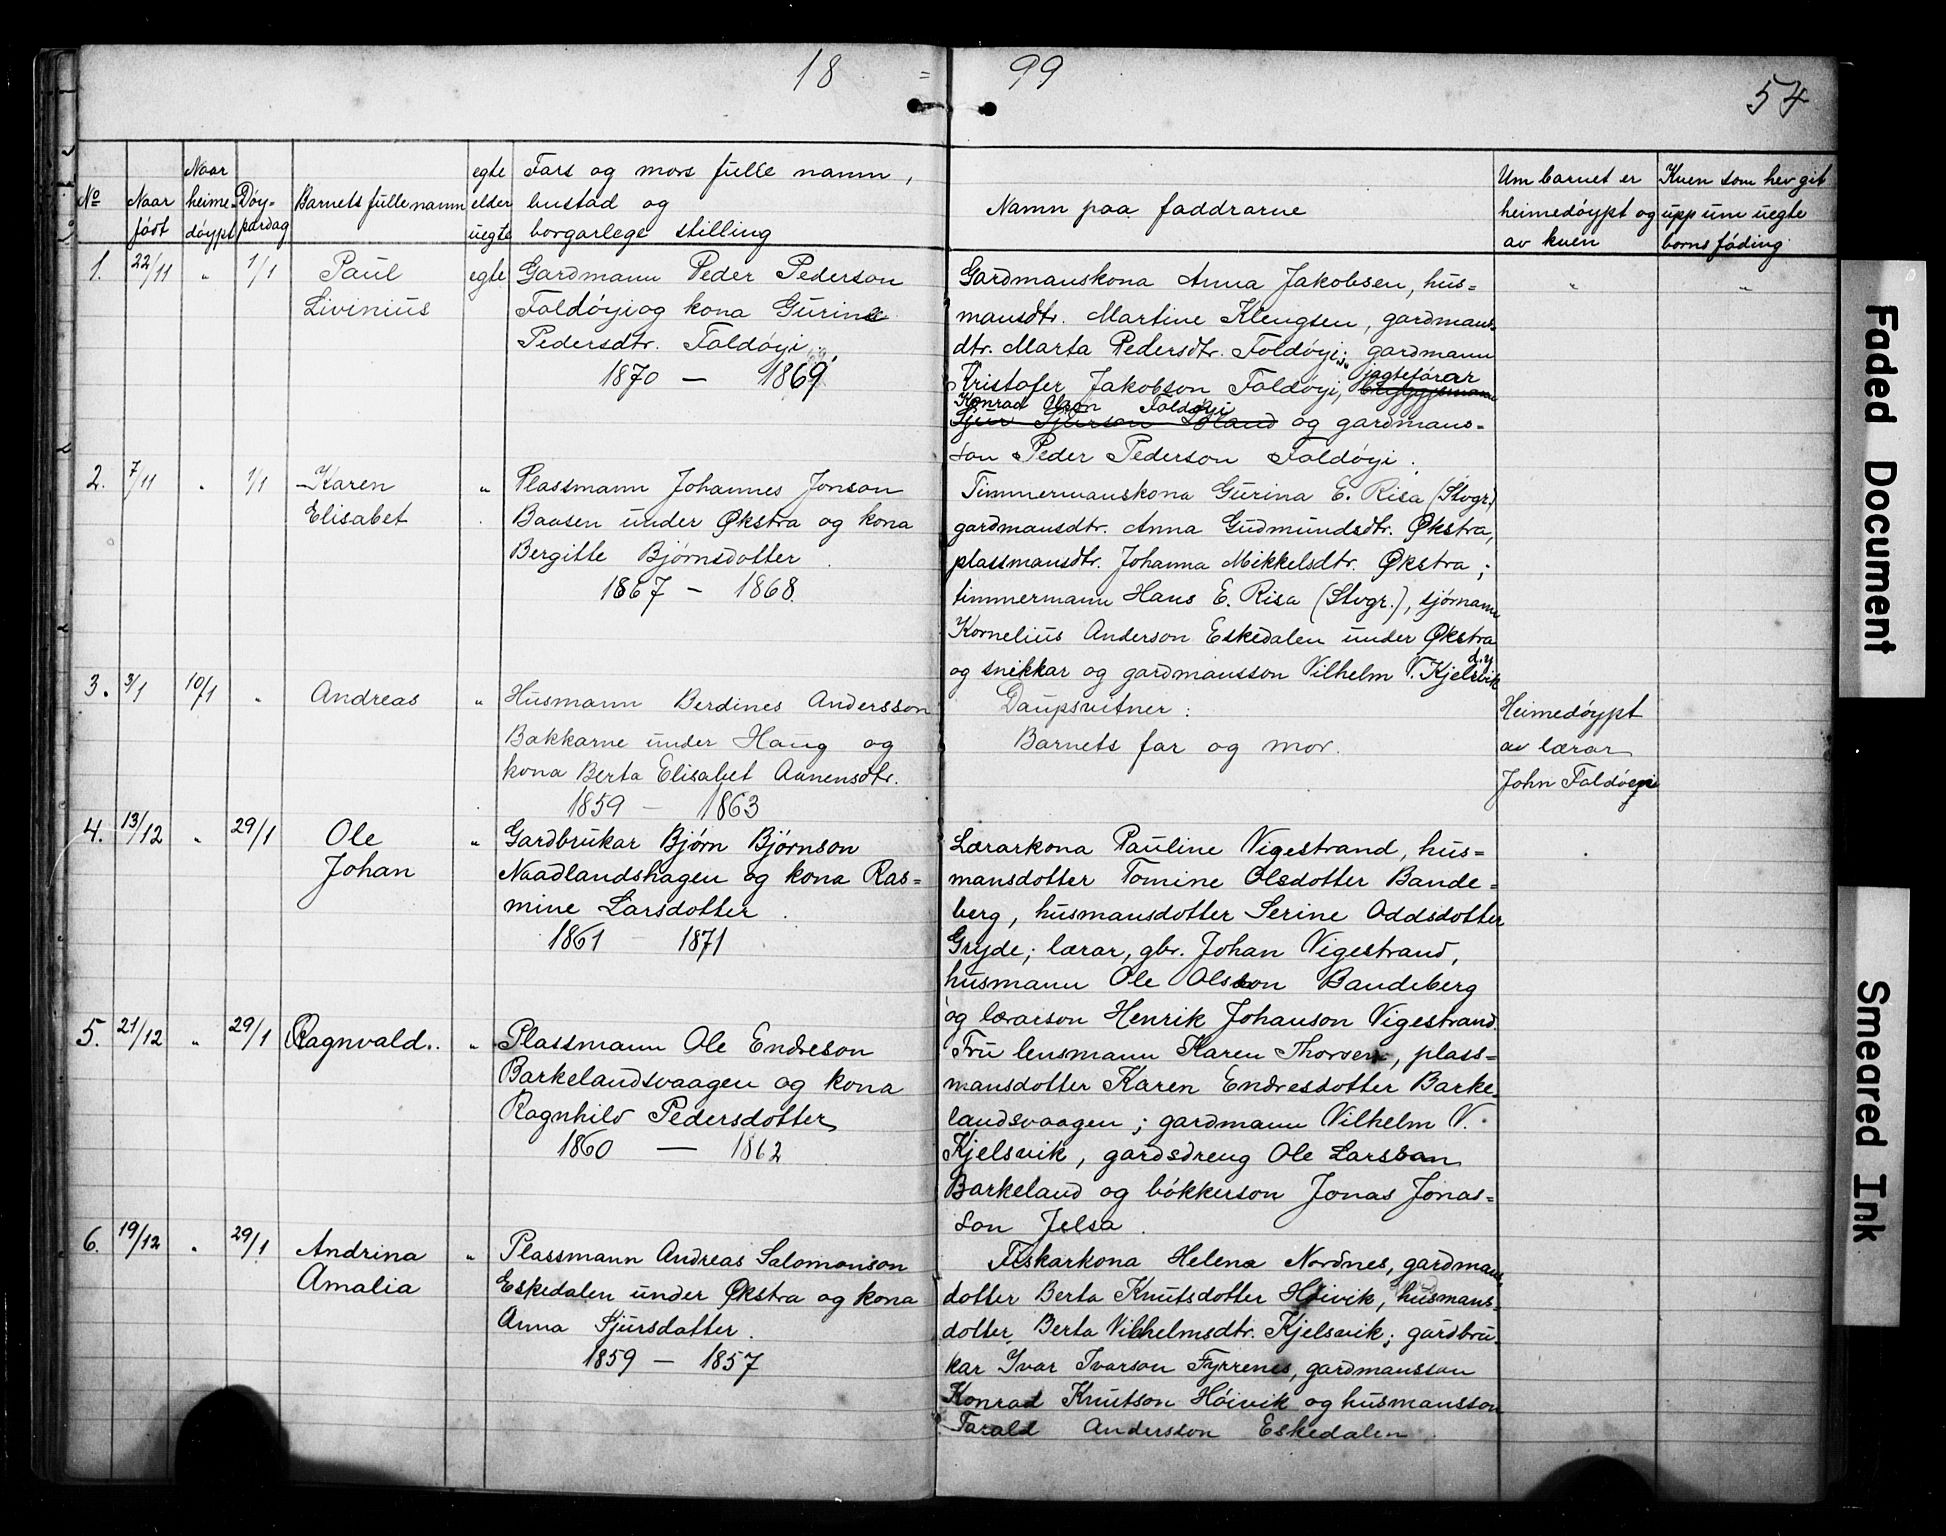 18 = 99
54
No
Naar
født
Naar
heime-
døypt
Døy-
pardag
Barnets fulle namn
egte
elder
uegte
Fars og mors fulle namn,
bustad og
borgarlege stilling
Namn paa faddrarne
Um barnet er
heimedøypt og
av kven
Kven som hev git
upp um uegte
borns føding.
1. 22/11 " 1/1 Paul egte Gardmann Peder Pederson
Livinius Foldøyi og kona Gurine
Pedersdtr. Foldøyi.
1870 — 1869.
Gardmanskona Anna Jakobsen, hus= " "
mansdtr. Martine Klengsen, gardmans-
dtr. Marta Pedersdtr. Foldøyi; gardmann
jagteførar
Kristofer Jakobson Foldøyi,
Konrad Olson Foldøyi
og gardmans-
son Peder Pederson Foldøyi.
2. 7/11 " 1/1 Karen " Plassmann Johannes Jonson
Elisabet Baasen under Økstra og kona
Bergitte Bjørnsdotter.
1867 — 1868.
Timmermanskona Gurina E. Risa (Stvgr.)
gardmansdtr. Anna Gudmundsdtr. Økstra,
plassmansdtr. Johanna Mikkelsdtr. Økstra;
timmermann Hans E. Risa (Stvgr.), sjømann
Kornelius Anderson Eskedalen under Økstra
d.y.
og snikkar og gardmansson Vilhelm V. Kjelsvik
3. 3/1 10/1 " Andreas " Husmann Berdines Andersson
Bakkarne under Haug og
kona Berta Elisabet Aanensdtr.
1859 — 1863
Daupsvitner:
Barnets far og mor.
Heimedøypt
av lærar
John Foldøyi
4. 13/12 " 29/1 Ole " Gardbrukar Bjørn Bjørnson
Johan Naadlandshagen og kona Ras=
mine Larsdotter.
1861 1871
Lærarkona Pauline Vigestrand, hus=
mansdotter Tomine Olsdotter Bande=
berg, husmansdotter Serine Oddsdotter
Gryde; lærar, gbr. Johan Vigestrand,
husmann Ole Olsson Bandeberg
og lærarson Henrik Johanson Vigestrand.
5. 21/12 " 29/1 Ragnvald. " Plassmann Ole Endreson
Barkelandsvaagen og kona
Ragnhild Pedersdotter
1860 — 1862
Fru lensmann Karen Thorsen, plass=
mansdotter Karen Endresdotter Barke-
landsvaagen; gardmann Vilhelm V.
Kjelsvik, gardsdreng Ole Larsson
Barkeland og bøkkerson Jonas Jonas-
son Jelsa.
6. 19/12 " 29/1 Andrina " Plassmann Andreas Salomonson
Amalia Eskedalen under Økstra og kona
Anna Sjursdatter.
1859 — 1857
Fiskarkona Helena Nordnes, gardmans-
dotter Berta Knutsdotter Høivik, husmans-
dotter Berta Vilhelmsdtr. Kjelsvik; gardbru-
kar Ivar Ivarson Fyrrenes, gardmansson
Konrad Knutson Høivik og husmansson
Tarald Andersson Eskedalen.
Faded Document
Smeared Ink